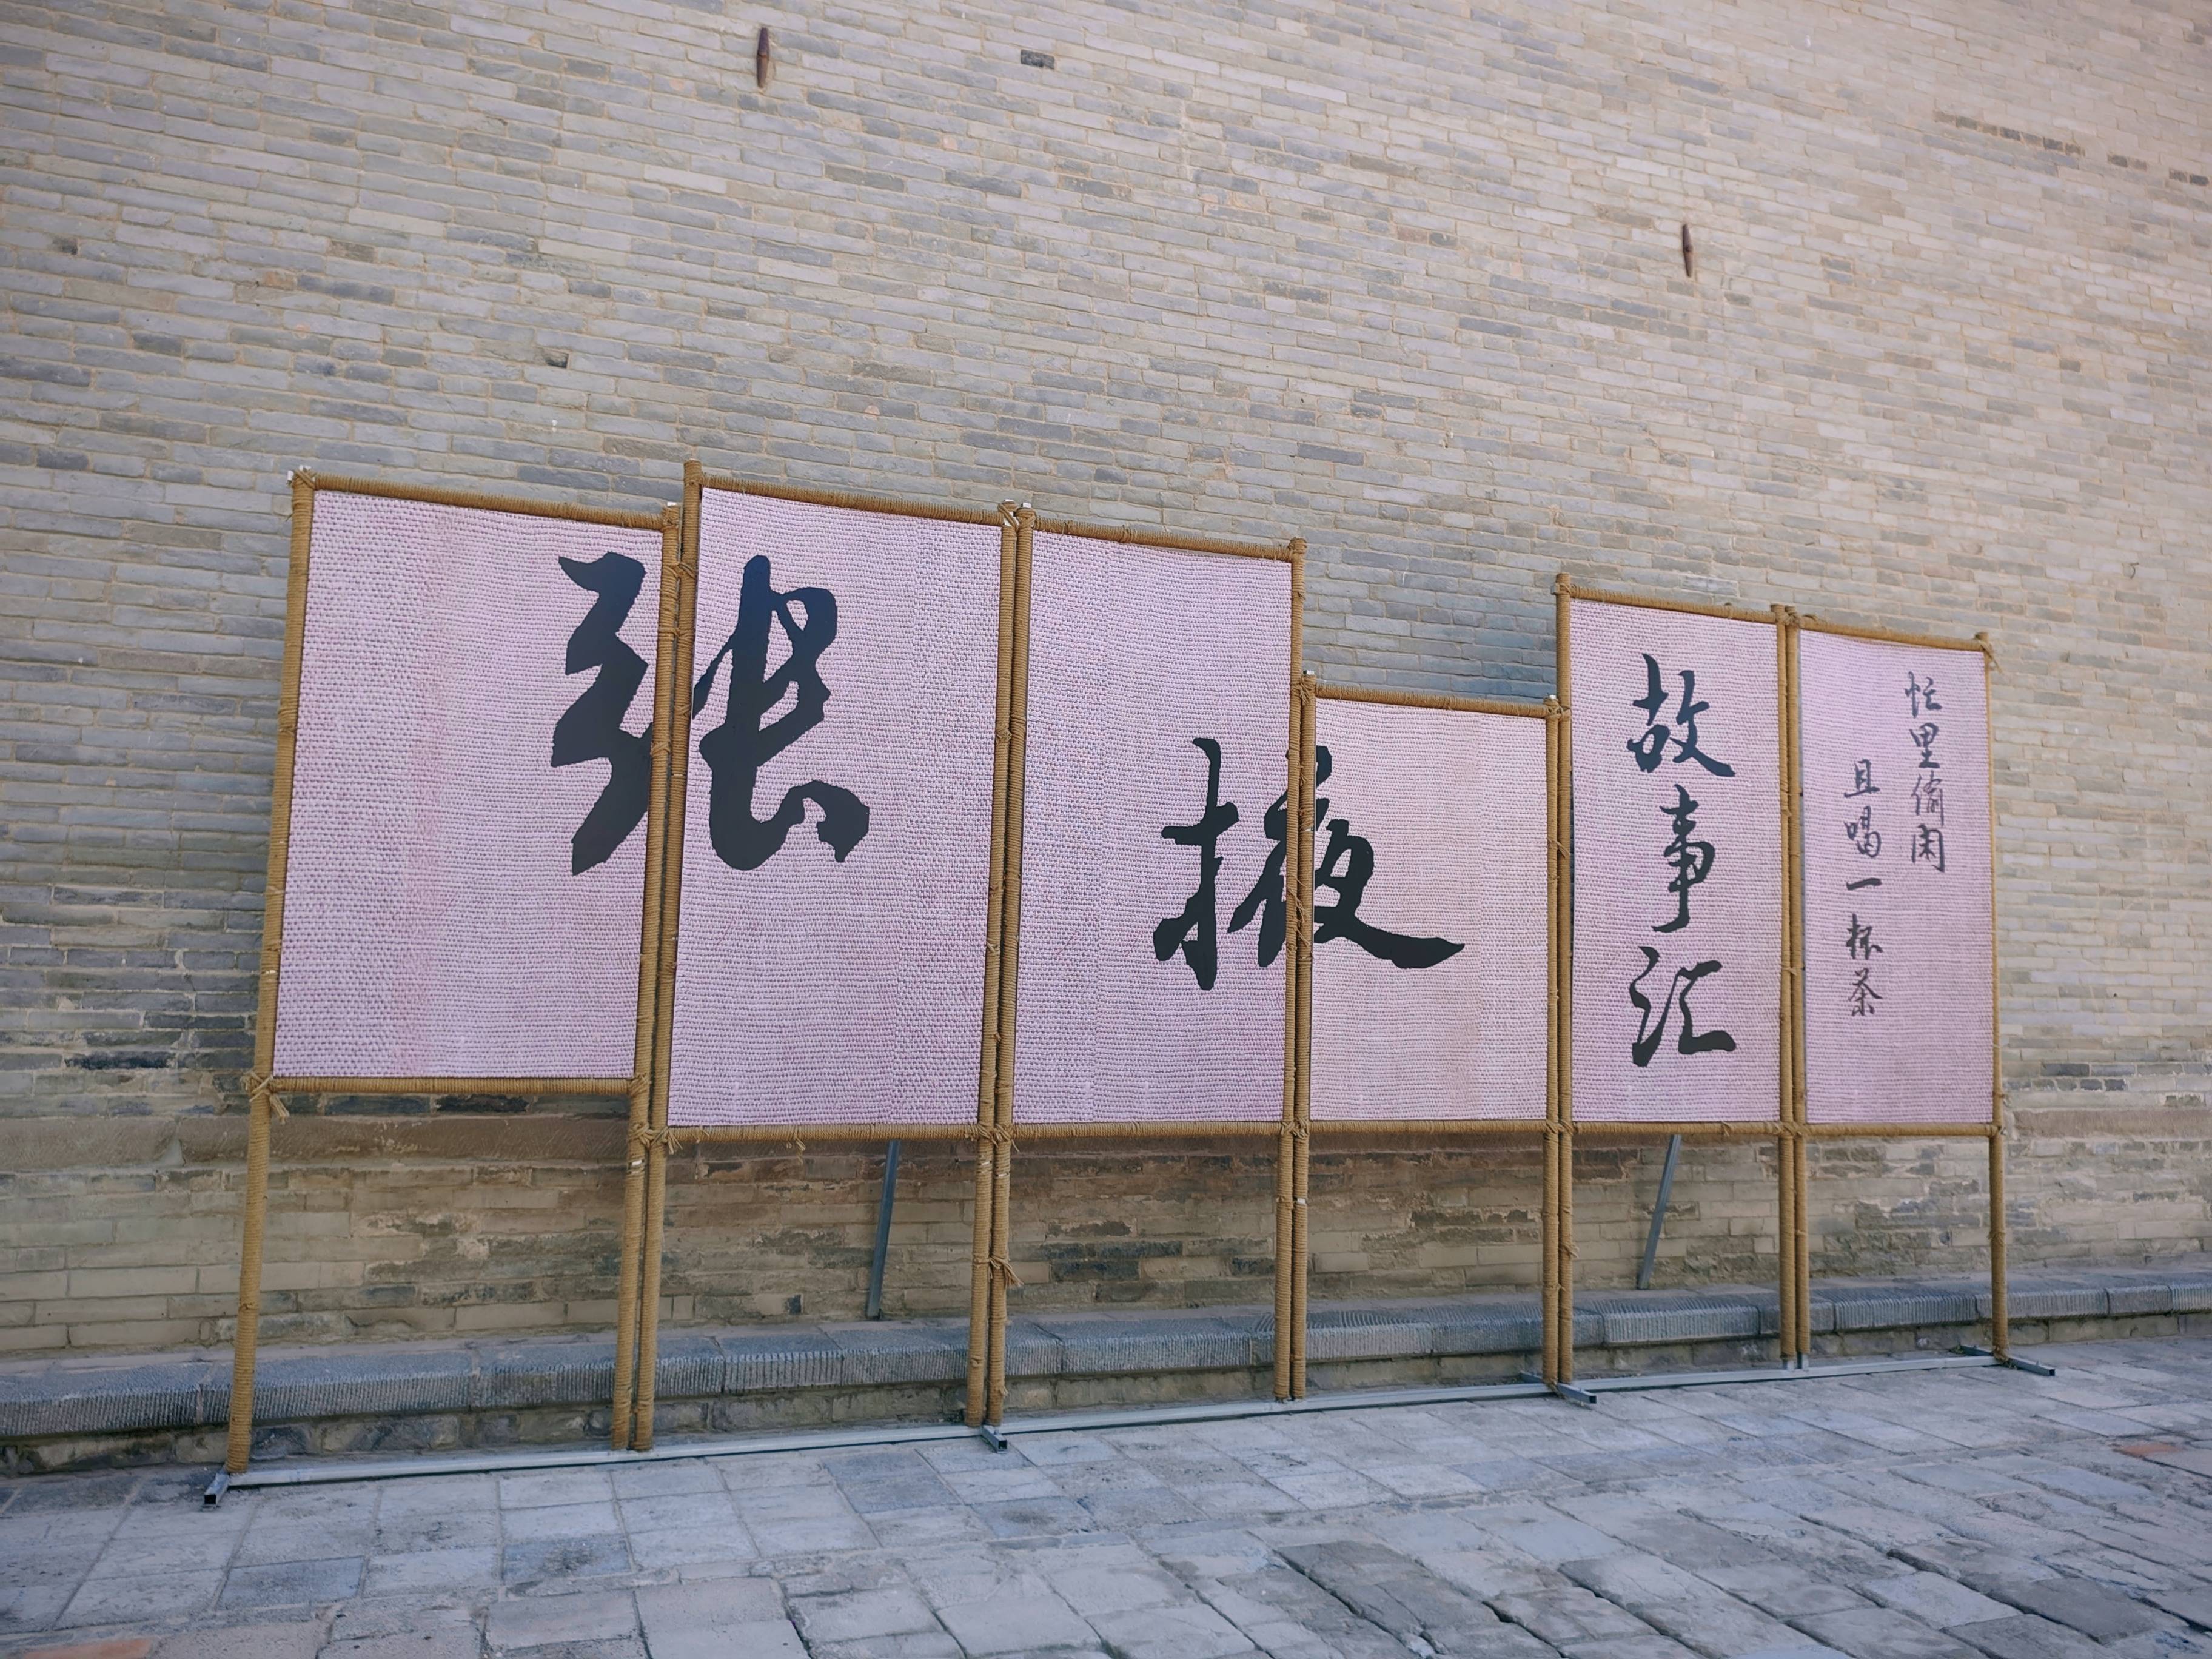 张掖
故事汇
忙里偷闲
且喝一杯茶